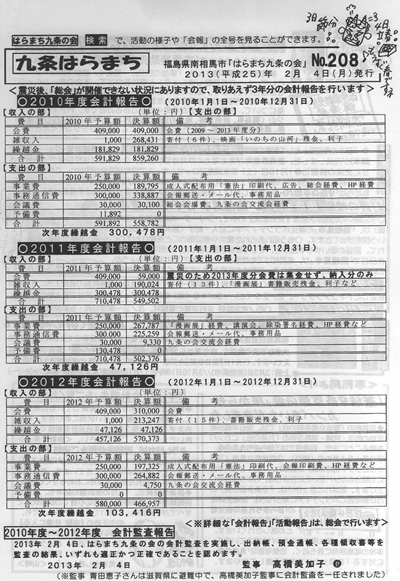 はらまち九条の会 検索 で、活動の様子や「会報」の全号を見ることができます。
3日節分
4日立春
九条はらまち
福島県南相馬市「はらまち九条の会」 No.208
2013(平成25)年 2月 4日(月)発行
<震災後、「総会」が開催できない状況にありますので、取りあえず3年分の会計報告を行います>
○2010年度会計報告○ (2010年1月1日~2010年12月31日)
【収入の部】 (単位:円)【支出の部】
費 目 2010年予算額 決算額 備 考
会費 409,000 409,000 会費(2009~2013年度分)
雑収入 1,000 268,431 寄付(6件)、映画「いのちの山河」残金、利子
繰越金 181,829 181,829
合計 591,829 859,260
【支出の部】
費 目 2010年予算額 決算額 備 考
事業費 250,000 189,795 成人式配布用「憲法」印刷代、広告、総会経費、HP経費
事務通信費 300,000 338,887 会報郵送・メール代、事務用品
会議費 30,000 30,100 総会会場費、九条の会交流会経費
予備費 11,892 0
合計 591,892 558,782
次年度繰越金 300,478円
○2011年度会計報告○ (2011年1月1日~2011年12月31日)
【収入の部】 (単位:円)【支出の部】
費 目 2011年予算額 決算額 備 考
会費 409,000 59,000 震災のため2013年度分会費は集金せず、納入分のみ
雑収入 1,000 190,024 寄付(13件)、「漫画展」書籍販売残金、利子など
繰越金 300,478 300,478
合計 710,478 549,502
【支出の部】
費 目 2011年予算額 決算額 備 考
事業費 250,000 267,787 「漫画展」経費、講演会、除染署名経費、HP経費など
事務通信費 300,000 225,259 会報郵送・メール代、事務用品
会議費 30,000 9,330 九条の会交流会経費
予備費 130,478 0
合計 710,478 502,376
次年度繰越金 47,126円
○2012年度会計報告○ (2012年1月1日~2012年12月31日)
【収入の部】 (単位:円)
費 目 2012年予算額 決算額 備 考
会費 409,000 310,000
雑収入 1,000 213,247 寄付(15件)、書籍販売残金、利子
繰越金 47,126 47,126
合計 457,126 570,373
【支出の部】
費 目 2012年予算額 決算額 備 考
事業費 250,000 197,325 成人式配布用「憲法」印刷代、会報印刷代、HP経費など
事務通信費 300,000 264,882 会報郵送・メール代、事務用品
会議費 30,000 4,750 九条の会交流会経費
予備費 0 0
合計 580,000 466,957
次年度繰越金 103,416円
<※詳細な「会計報告」「活動報告」は、総会で行います>
2010年度~2012年度 会計監査報告
2013年2月4日、はらまち九条の会の会計監査を実施し、出納帳、預金通帳、各種領収書等を
監査の結果、いずれも適正かつ正確であることを認めます。
2013年 2月 4日 監事 高橋美加子 印
(※監事 青田恵子さんは滋賀県に避難中で、高橋美加子監事に会計監査を一任されました)